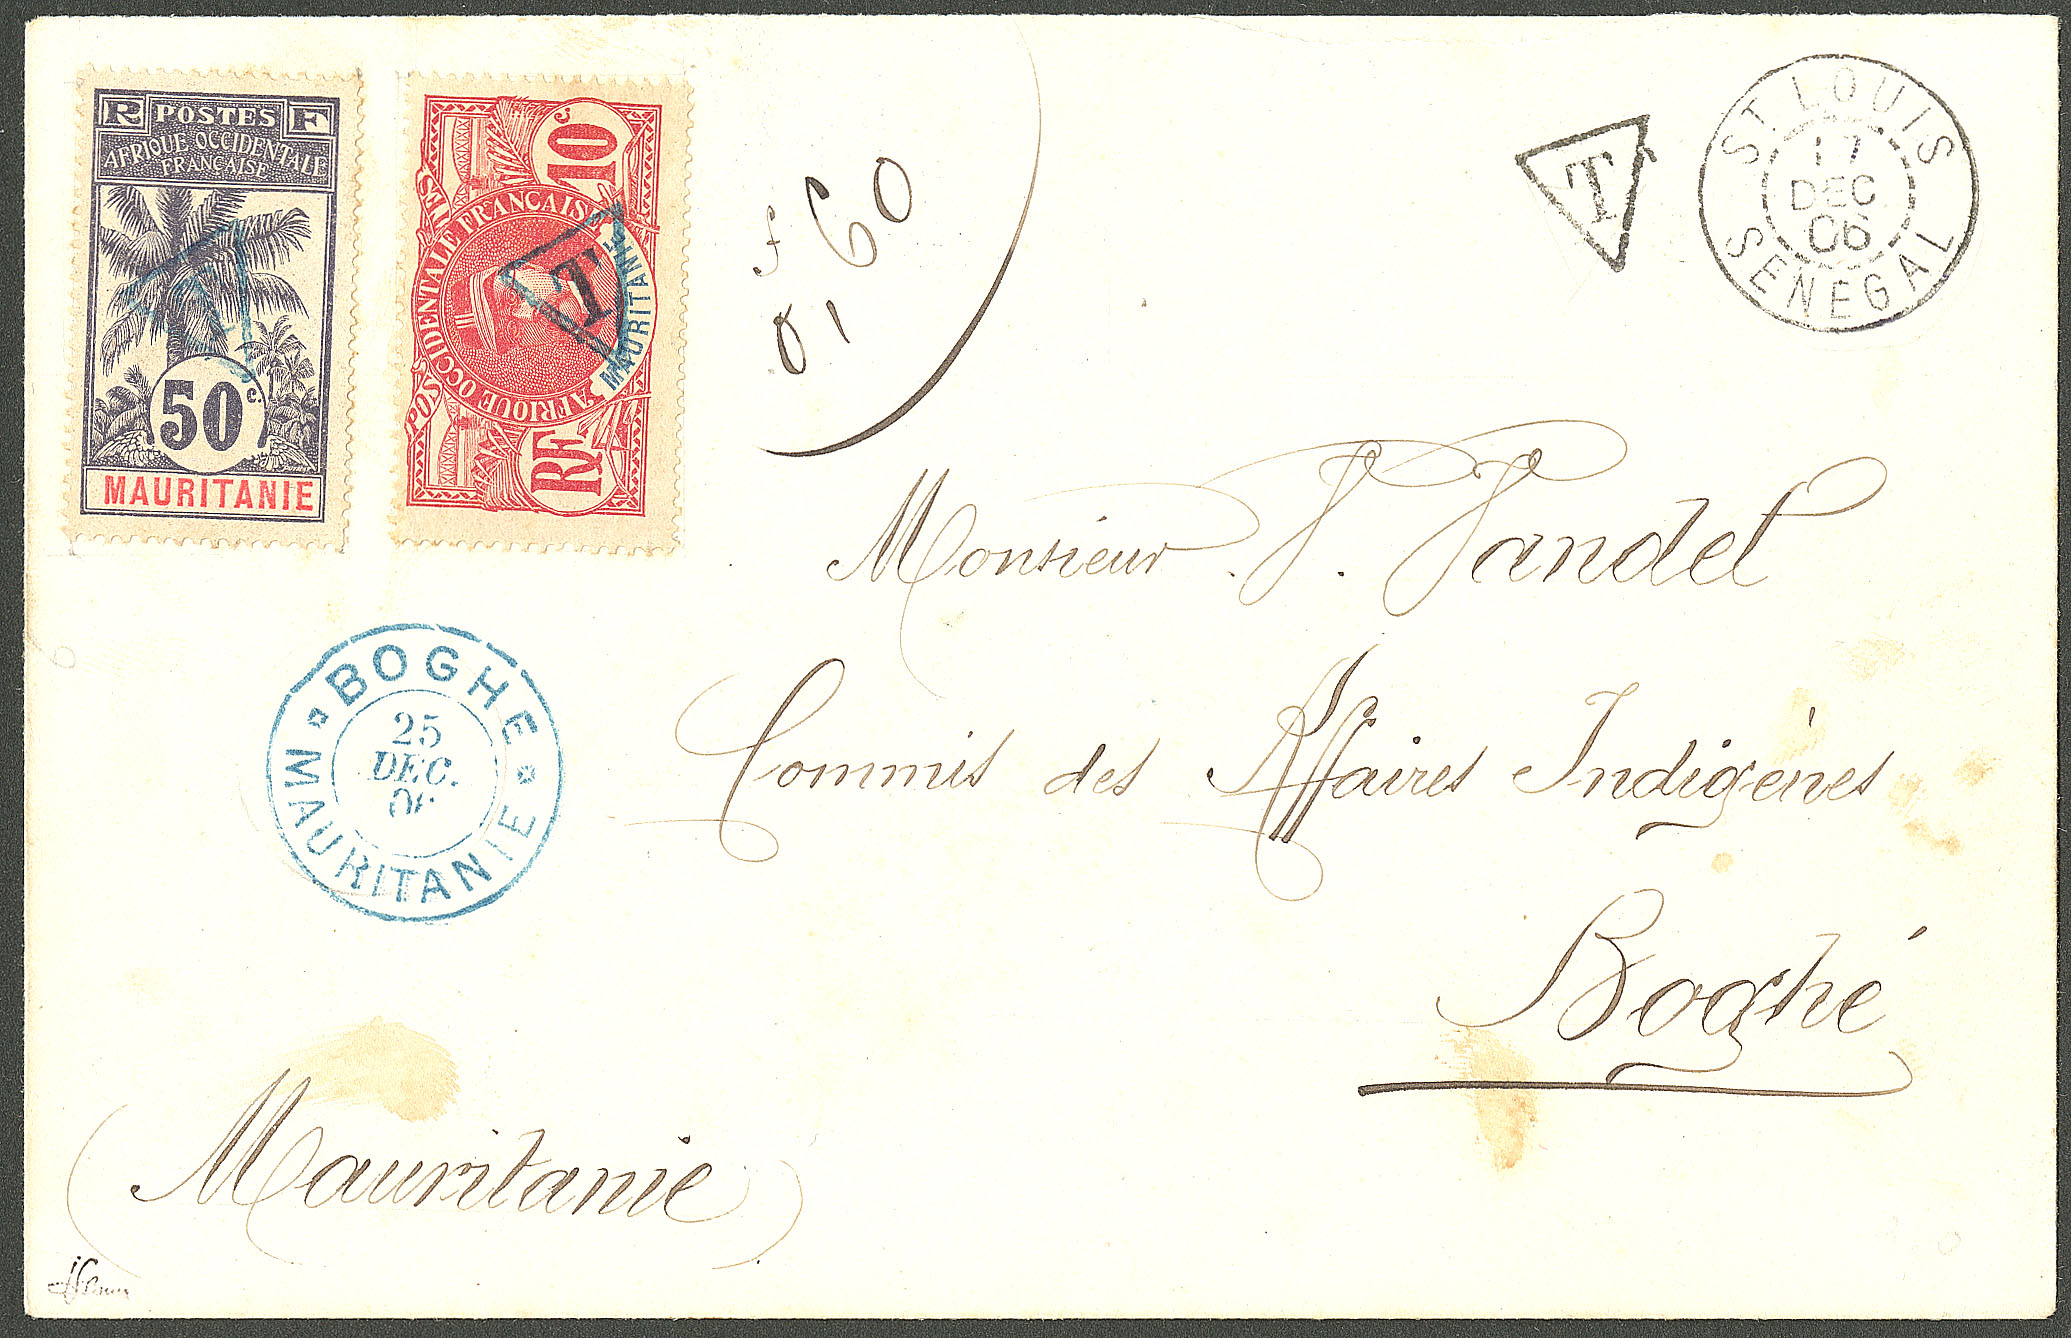 R POSTES F
AFRIQUE OCCIDENTALE
FRANÇAISE
50 c.
MAURITANIE
T
10 c.
POSTES
AFRIQUE OCCIDENTALE FRANÇAISE
RF
MAURITANIE
T
f
0,60
T
ST LOUIS
17
DEC
06
SENEGAL
Monsieur P. Vandel
Commis des Affaires Indigènes
Boghé
(Mauritanie)
BOGHE
25
DEC.
MAURITANIE